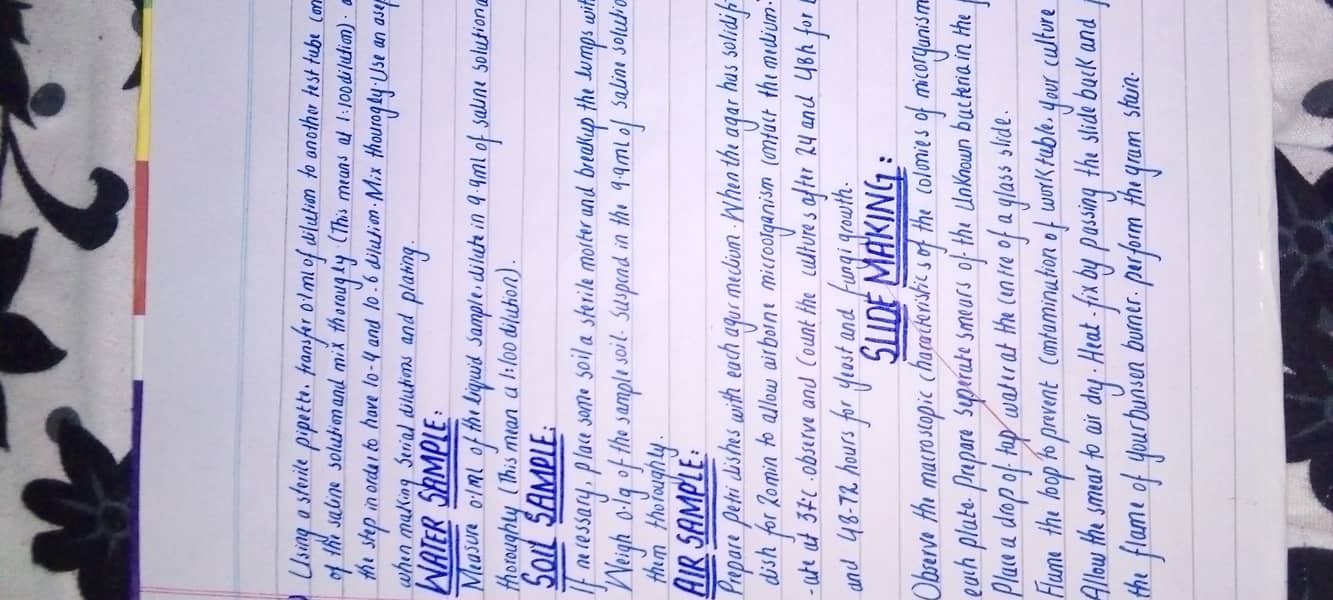 Using a sterile pipette, transfer 0.1ml of dilution to another test tube con
of the saline solution and mix thorougly. (This means a 1:100 dilution).
the step in order to have 10-4 and 10-6 dilution. Mix thourogly. Use an asep
when making serial dilutions and plating.
WATER SAMPLE:
Measure 0.1ml of the liquid sample. dilute in 9.9ml of saline solution a
thoroughly (This mean a 1:100 dilution).
SOIL SAMPLE:
If necessary, place some soil a sterile morter and breakup the lumps wit
Weigh 0.1g of the sample soil. Suspend in the 9.9ml of saline solutio
them thoroughly.
AIR SAMPLE:
Prepare petri dishes with each agar medium. When the agar has solidif
dish for 20min to allow airborne microorganism contact the medium.
-ate at 37.c. observe and Count the cultures after 24 and 48h for
and 48-72 hours for yeast and fungi growth.
SLIDE MAKING:
Observe the macroscopic characteristics of the colonies of micorganism
each plate. Prepare seperate smears of the unknown bacteria in the
Place a drop of tap water at the centre of a glass slide.
Flame the loop to prevent contammination of work table, your culture
Allow the smear to air dry. Heat-fix by passing the slide back and
the flame of your bunsen burner. perform the gram stain.